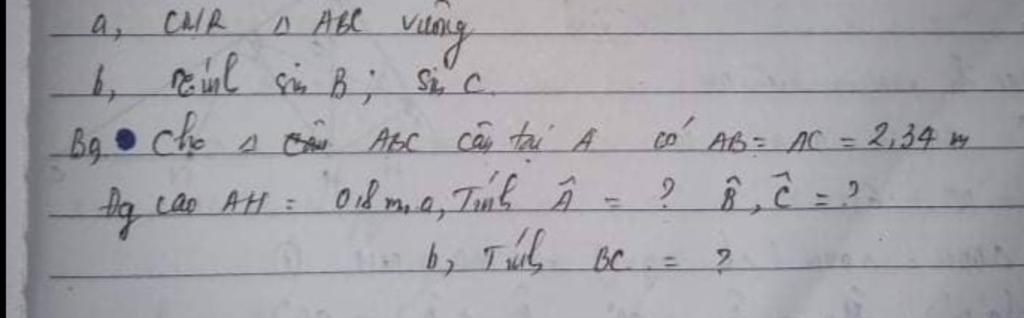 a, CMR Δ ABC vuông
b, Tính sin B; Sin C.
B9 Cho Δ cân ABC cân tại A có AB = AC = 2,34 m
Đg cao AH = 0,8 m, a, Tính Â = ? B̂, Ĉ = ?
b, Tính BC = ?